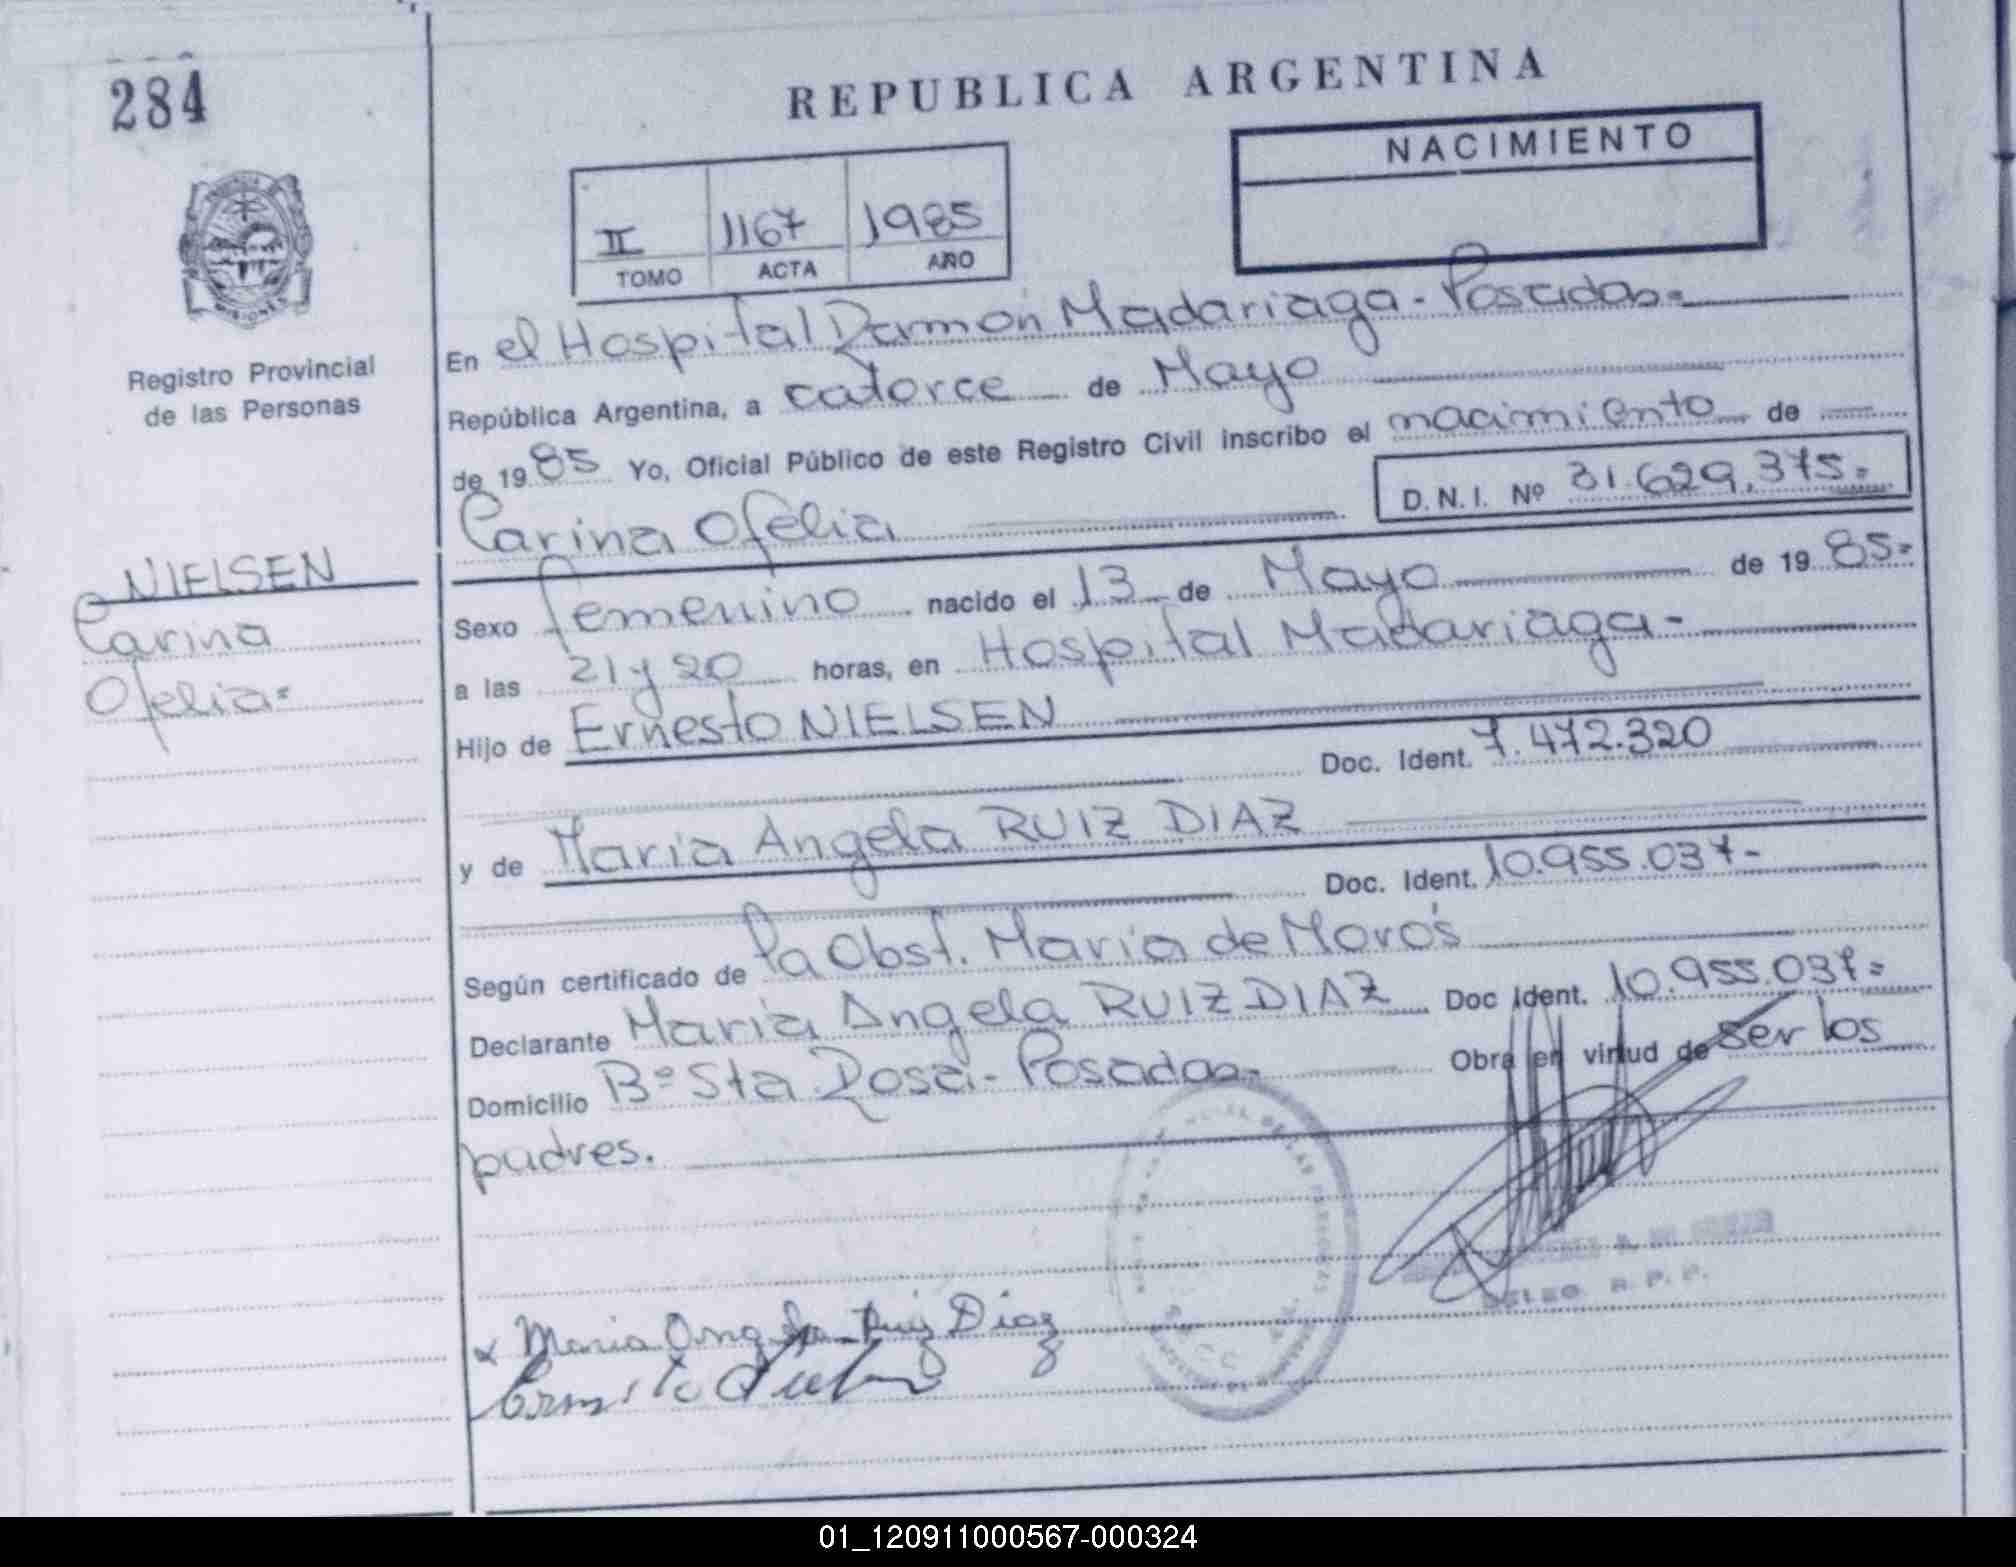 284
REPUBLICA ARGENTINA
NACIMIENTO
II 1167 1985
TOMO ACTA AÑO
MISIONES
Registro Provincial
de las Personas
En el Hospital Ramón Madariaga - Posadas=
República Argentina, a catorce de Mayo
de 1985 Yo, Oficial Público de este Registro Civil inscribo el nacimiento de
Carina Ofelia D.N.I. Nº 31.629.375=
NIELSEN
Carina
Ofelia=
Sexo femenino nacido el 13 de Mayo de 1985=
a las 21 y 20 horas, en Hospital Madariaga-
Hijo de Ernesto NIELSEN
Doc. Ident. 7.472.320
y de Maria Angela RUIZ DIAZ
Doc. Ident. 10.955.037-
Según certificado de la Obst. Maria de Moro's
Declarante Maria Angela RUIZ DIAZ Doc Ident. 10.955.037=
Domicilio Bº Sta Rosa - Posadas- Obra en virtud de ser los
padres.
DE LAS PERSONAS
DELEG. R. P. P.
x Maria Angela Ruiz Diaz
Ernesto
01_120911000567-000324